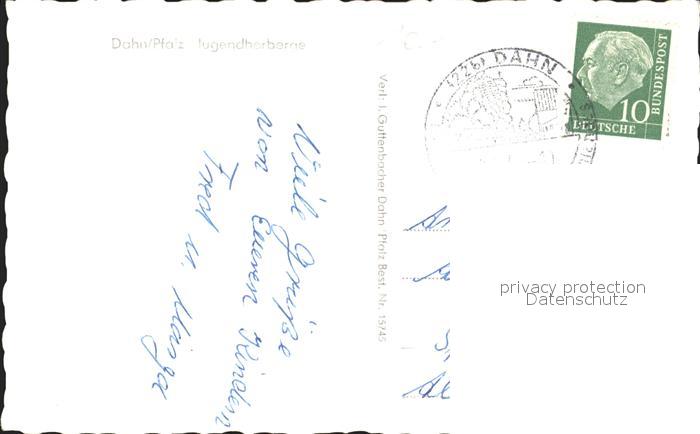 Dahn/Pfalz Jugendherberge
(22b) DAHN
10
DEUTSCHE
BUNDESPOST
Verl: J. Guttenbacher Dahn/Pfalz Best. Nr. 15745
Viele Grüße
von Eueren Kindern
Fred u. Marga
privacy protection
Datenschutz